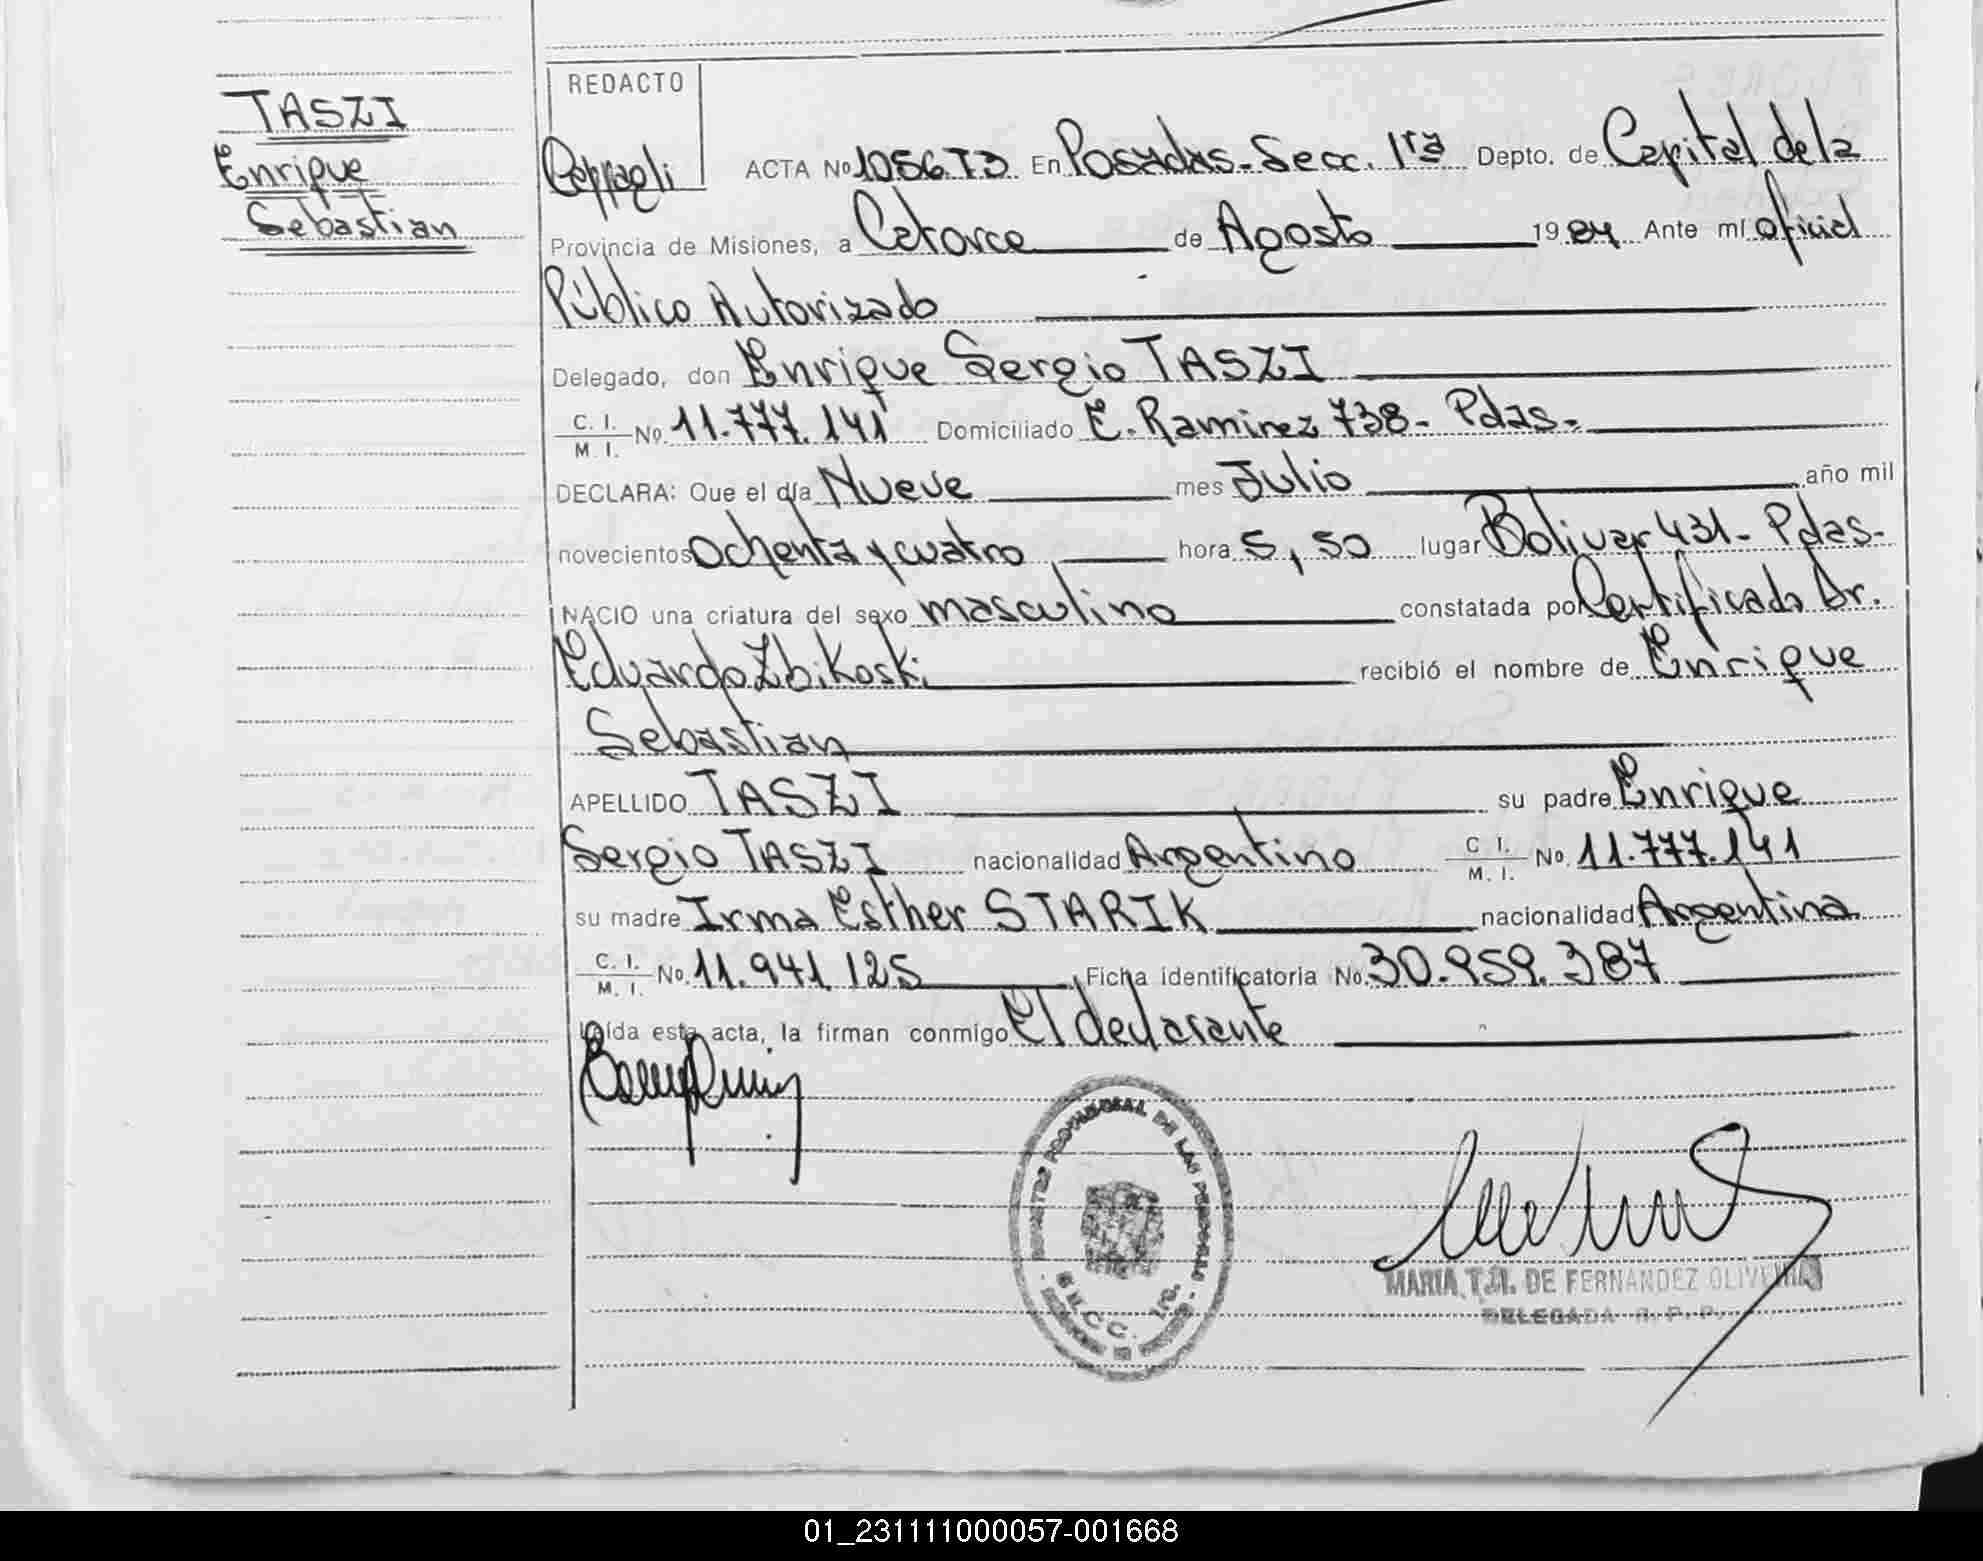 TASZI
Enrique
Sebastian
REDACTO
ACTA No 1056 T3 En Posadas-Secc. 1ra Depto. de Capital de la
Provincia de Misiones, a Catorce de Agosto 1984 Ante mí oficial
Público Autorizado
Delegado, don Enrique Sergio TASZI
C. I.
M. I. No. 11.777.141 Domiciliado E. Ramirez 738- Pdas.-
DECLARA: Que el día Nueve mes Julio año mil
novecientos Ochenta y cuatro hora 5,50 lugar Bolivar 431- Pdas.-
NACIO una criatura del sexo masculino constatada por Certificado Dr.
Eduardo Zbikoski recibió el nombre de Enrique
Sebastian
APELLIDO TASZI su padre Enrique
Sergio TASZI nacionalidad Argentino C. I.
M. I. No. 11.777.141
su madre Irma Esther STARIK nacionalidad Argentina
C. I.
M. I. No. 11.941.125 Ficha identificatoria No. 30.959.387
Leída esta acta, la firman conmigo El declarante
REGISTRO PROVINCIAL DE LAS PERSONAS
MARIA T. DE FERNANDEZ OLIVEIRA
DELEGADA R. P. P.
01_231111000057-001668